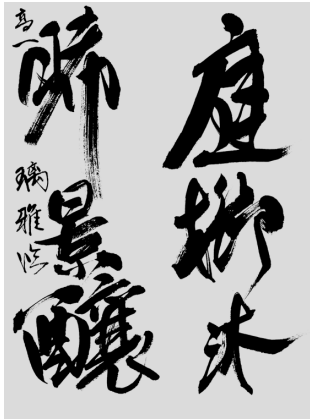 庭櫛沐
晞景釀
高一 璃雅臨